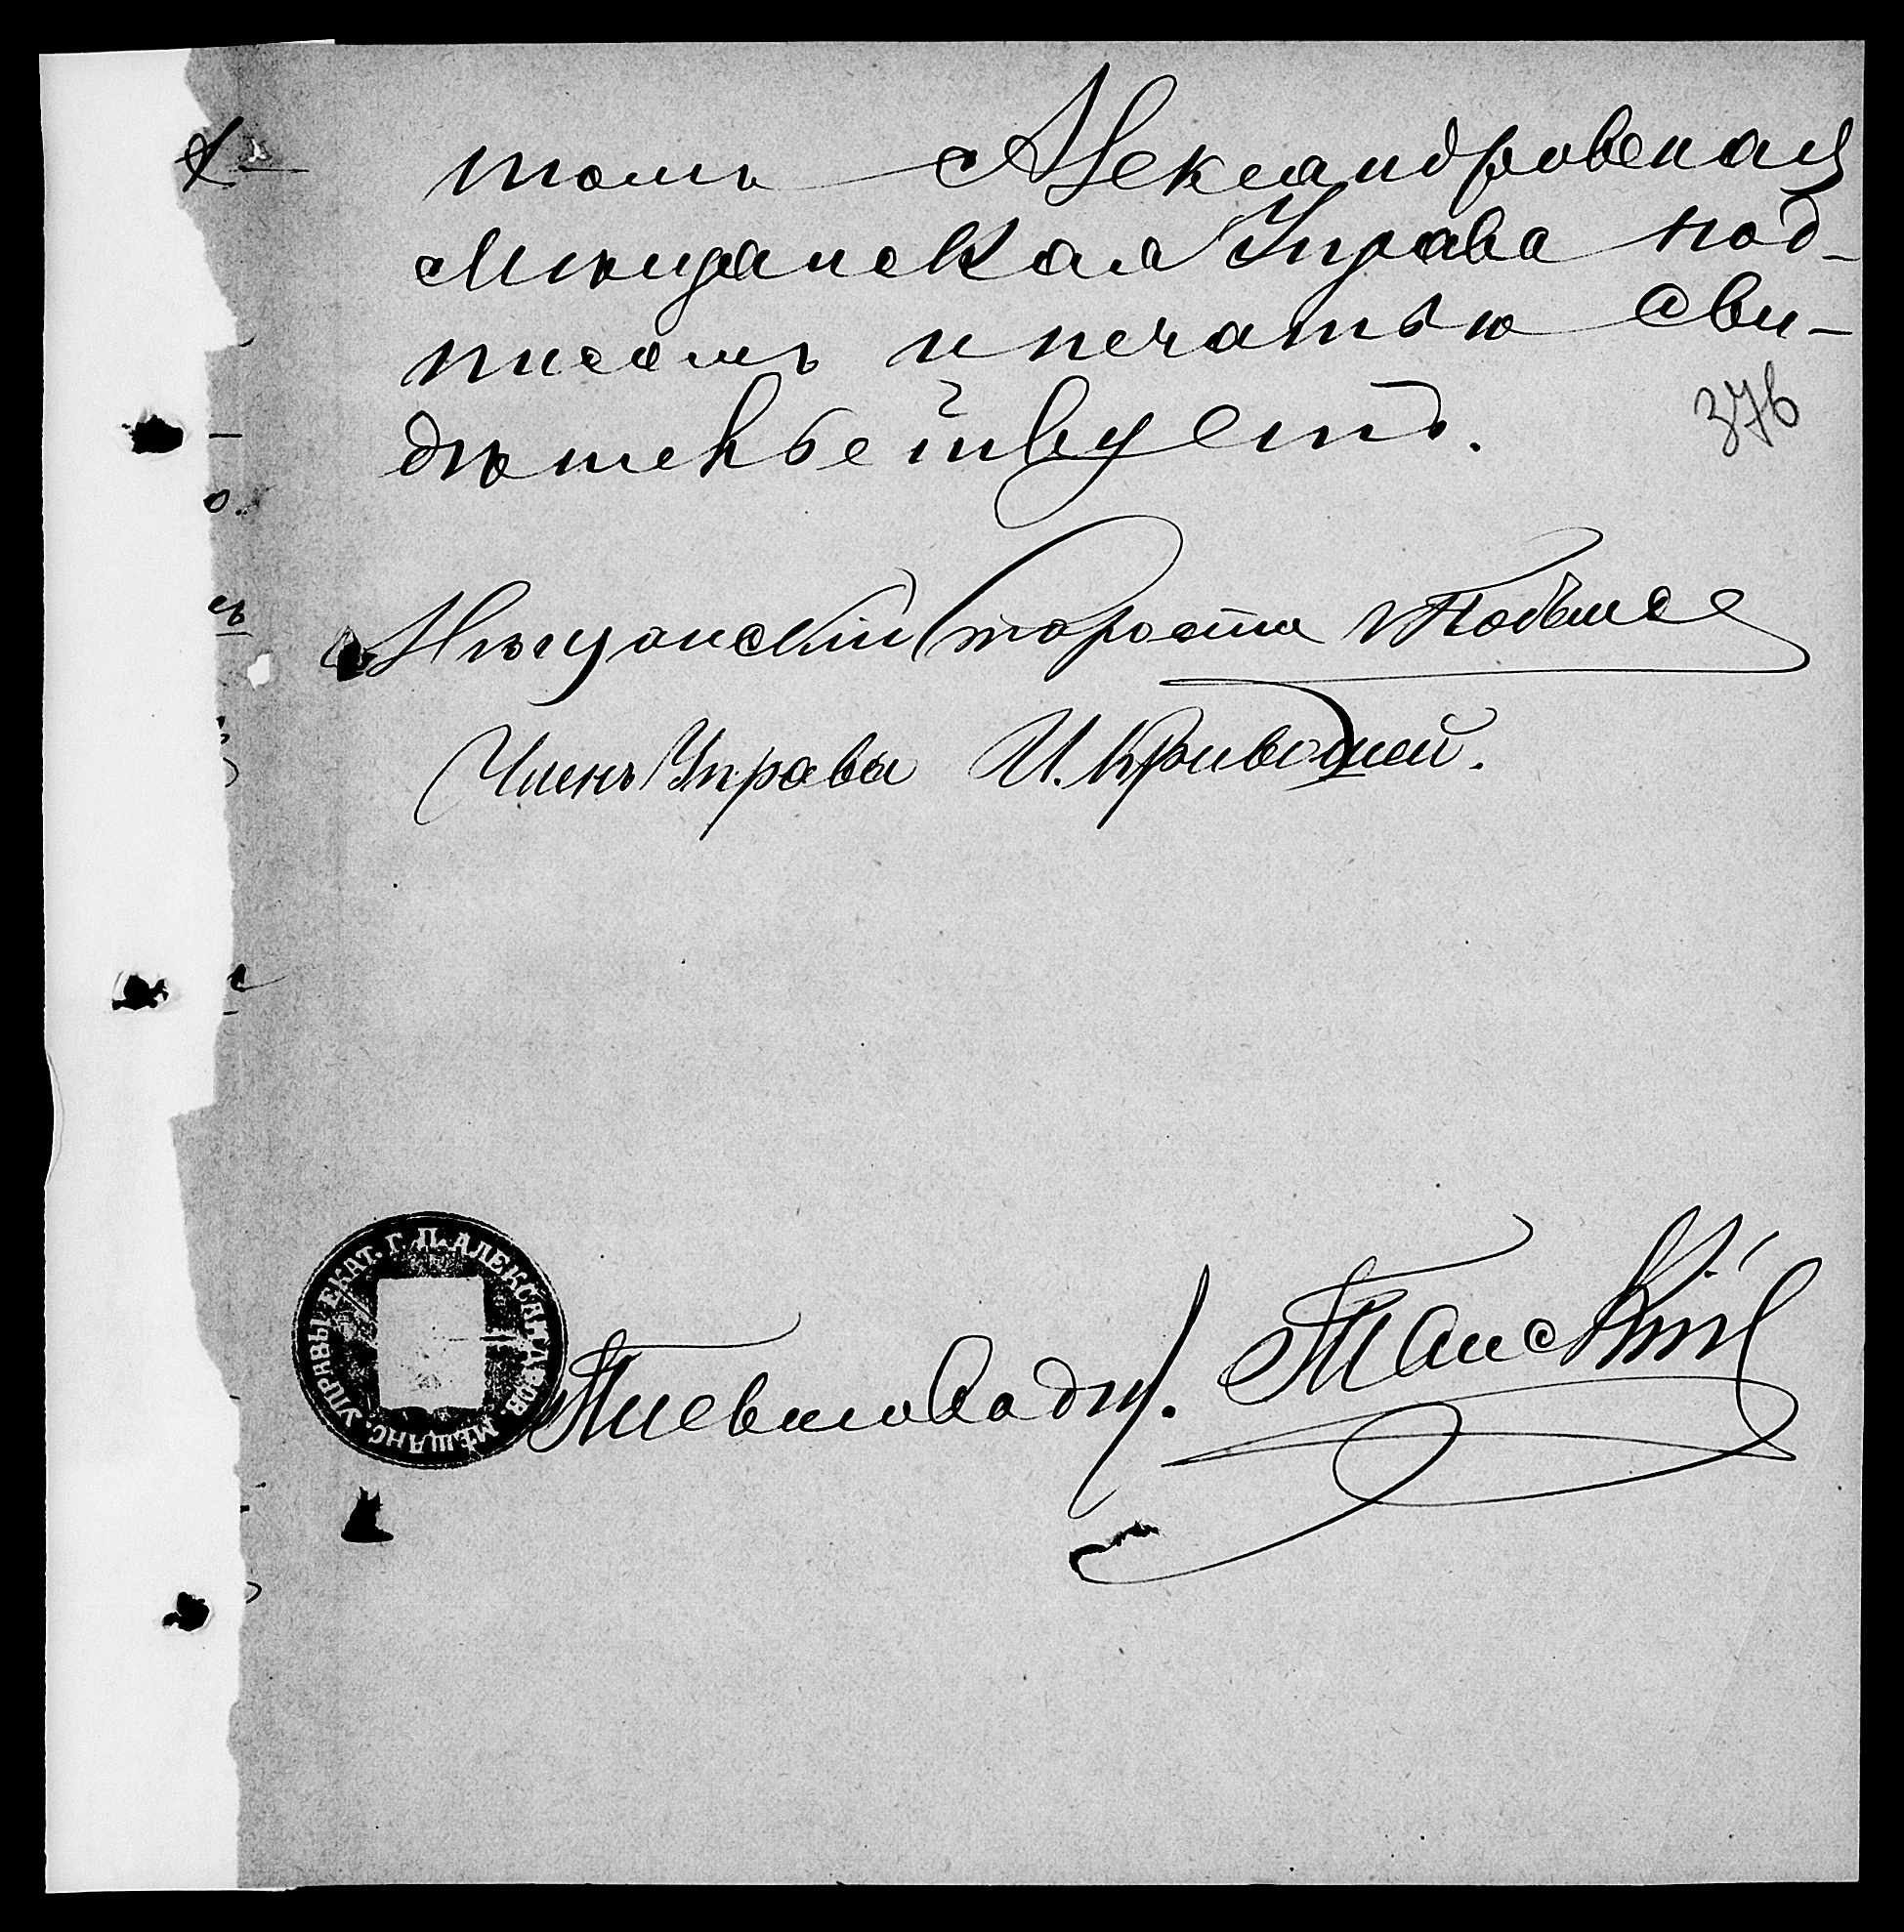 томъ Александровская
Мѣщанская Управа под-
писомъ и печатью сви-
дѣтельствуетъ.
376
Мѣщанскій Староста
Членъ Управы И. Криво
УПРАВЫ ЕКАТ. Г. П. АЛЕКСАНДРОВ. МѢЩАНС.
Письмоводит. Танскій